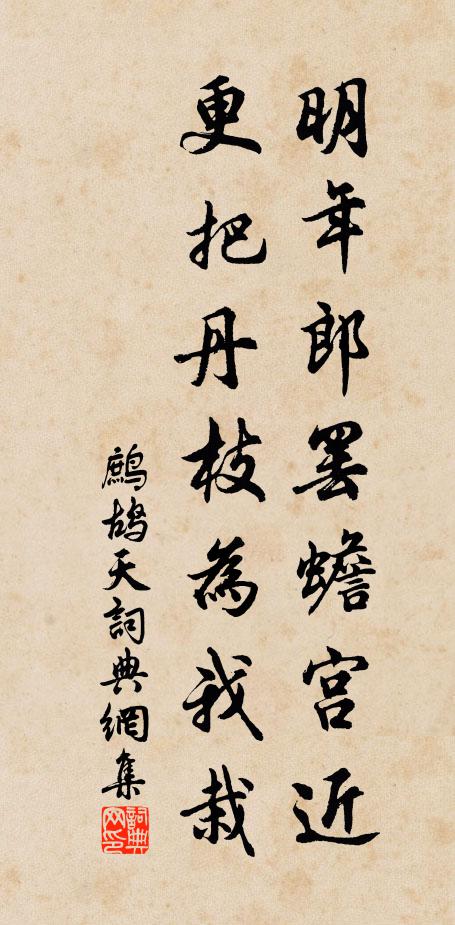 明年郎罢蟾宫近
更把丹枝為我栽
鹧鸪天詞典網集
詞典网印